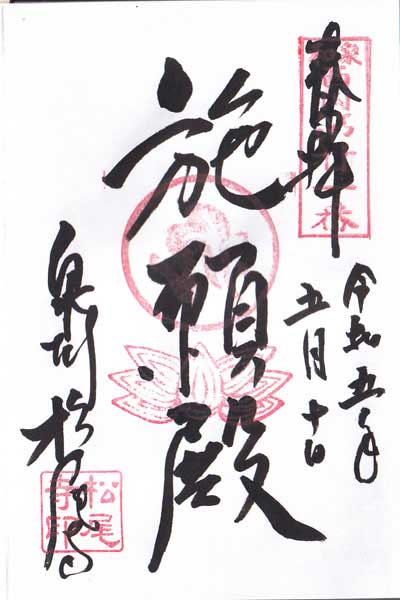 奉拝
令和五年
五月十日
施願殿
泉州 松尾寺
松尾
寺印